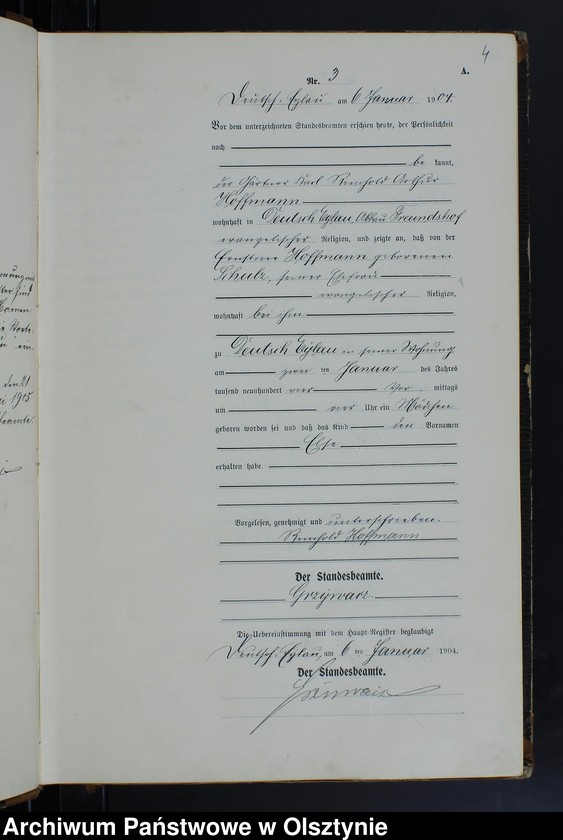 4
A.
Nr. 3
Deutsch-Eylau am 6 Januar 1904.
Vor dem unterzeichneten Standesbeamten erschien heute, der Persönlichkeit
nach
be kannt,
der Gärtner Karl Reinhold Arthur
Hoffmann
wohnhaft in Deutsch Eylau, Freundshof
evangelischer Religion, und zeigte an, daß von der
Ernstine Hoffmann geborenen
Schulz, seiner Ehefrau
evangelischer Religion,
wohnhaft bei ihm
zu Deutsch Eylau in seiner Wohnung
am zwei ten Januar des Jahres
tausend neunhundert vier Vor mittags
um vier Uhr ein Mädchen
geboren worden sei und daß das Kind den Vornamen
Else
erhalten habe.
Vorgelesen, genehmigt und unterschrieben.
Reinhold Hoffmann
Der Standesbeamte.
Grzywacz
Die Uebereinstimmung mit dem Haupt-Register beglaubigt
Deutsch-Eylau, am 6 ten Januar 1904.
Der Standesbeamte.
den 21
1905
Archiwum Państwowe w Olsztynie